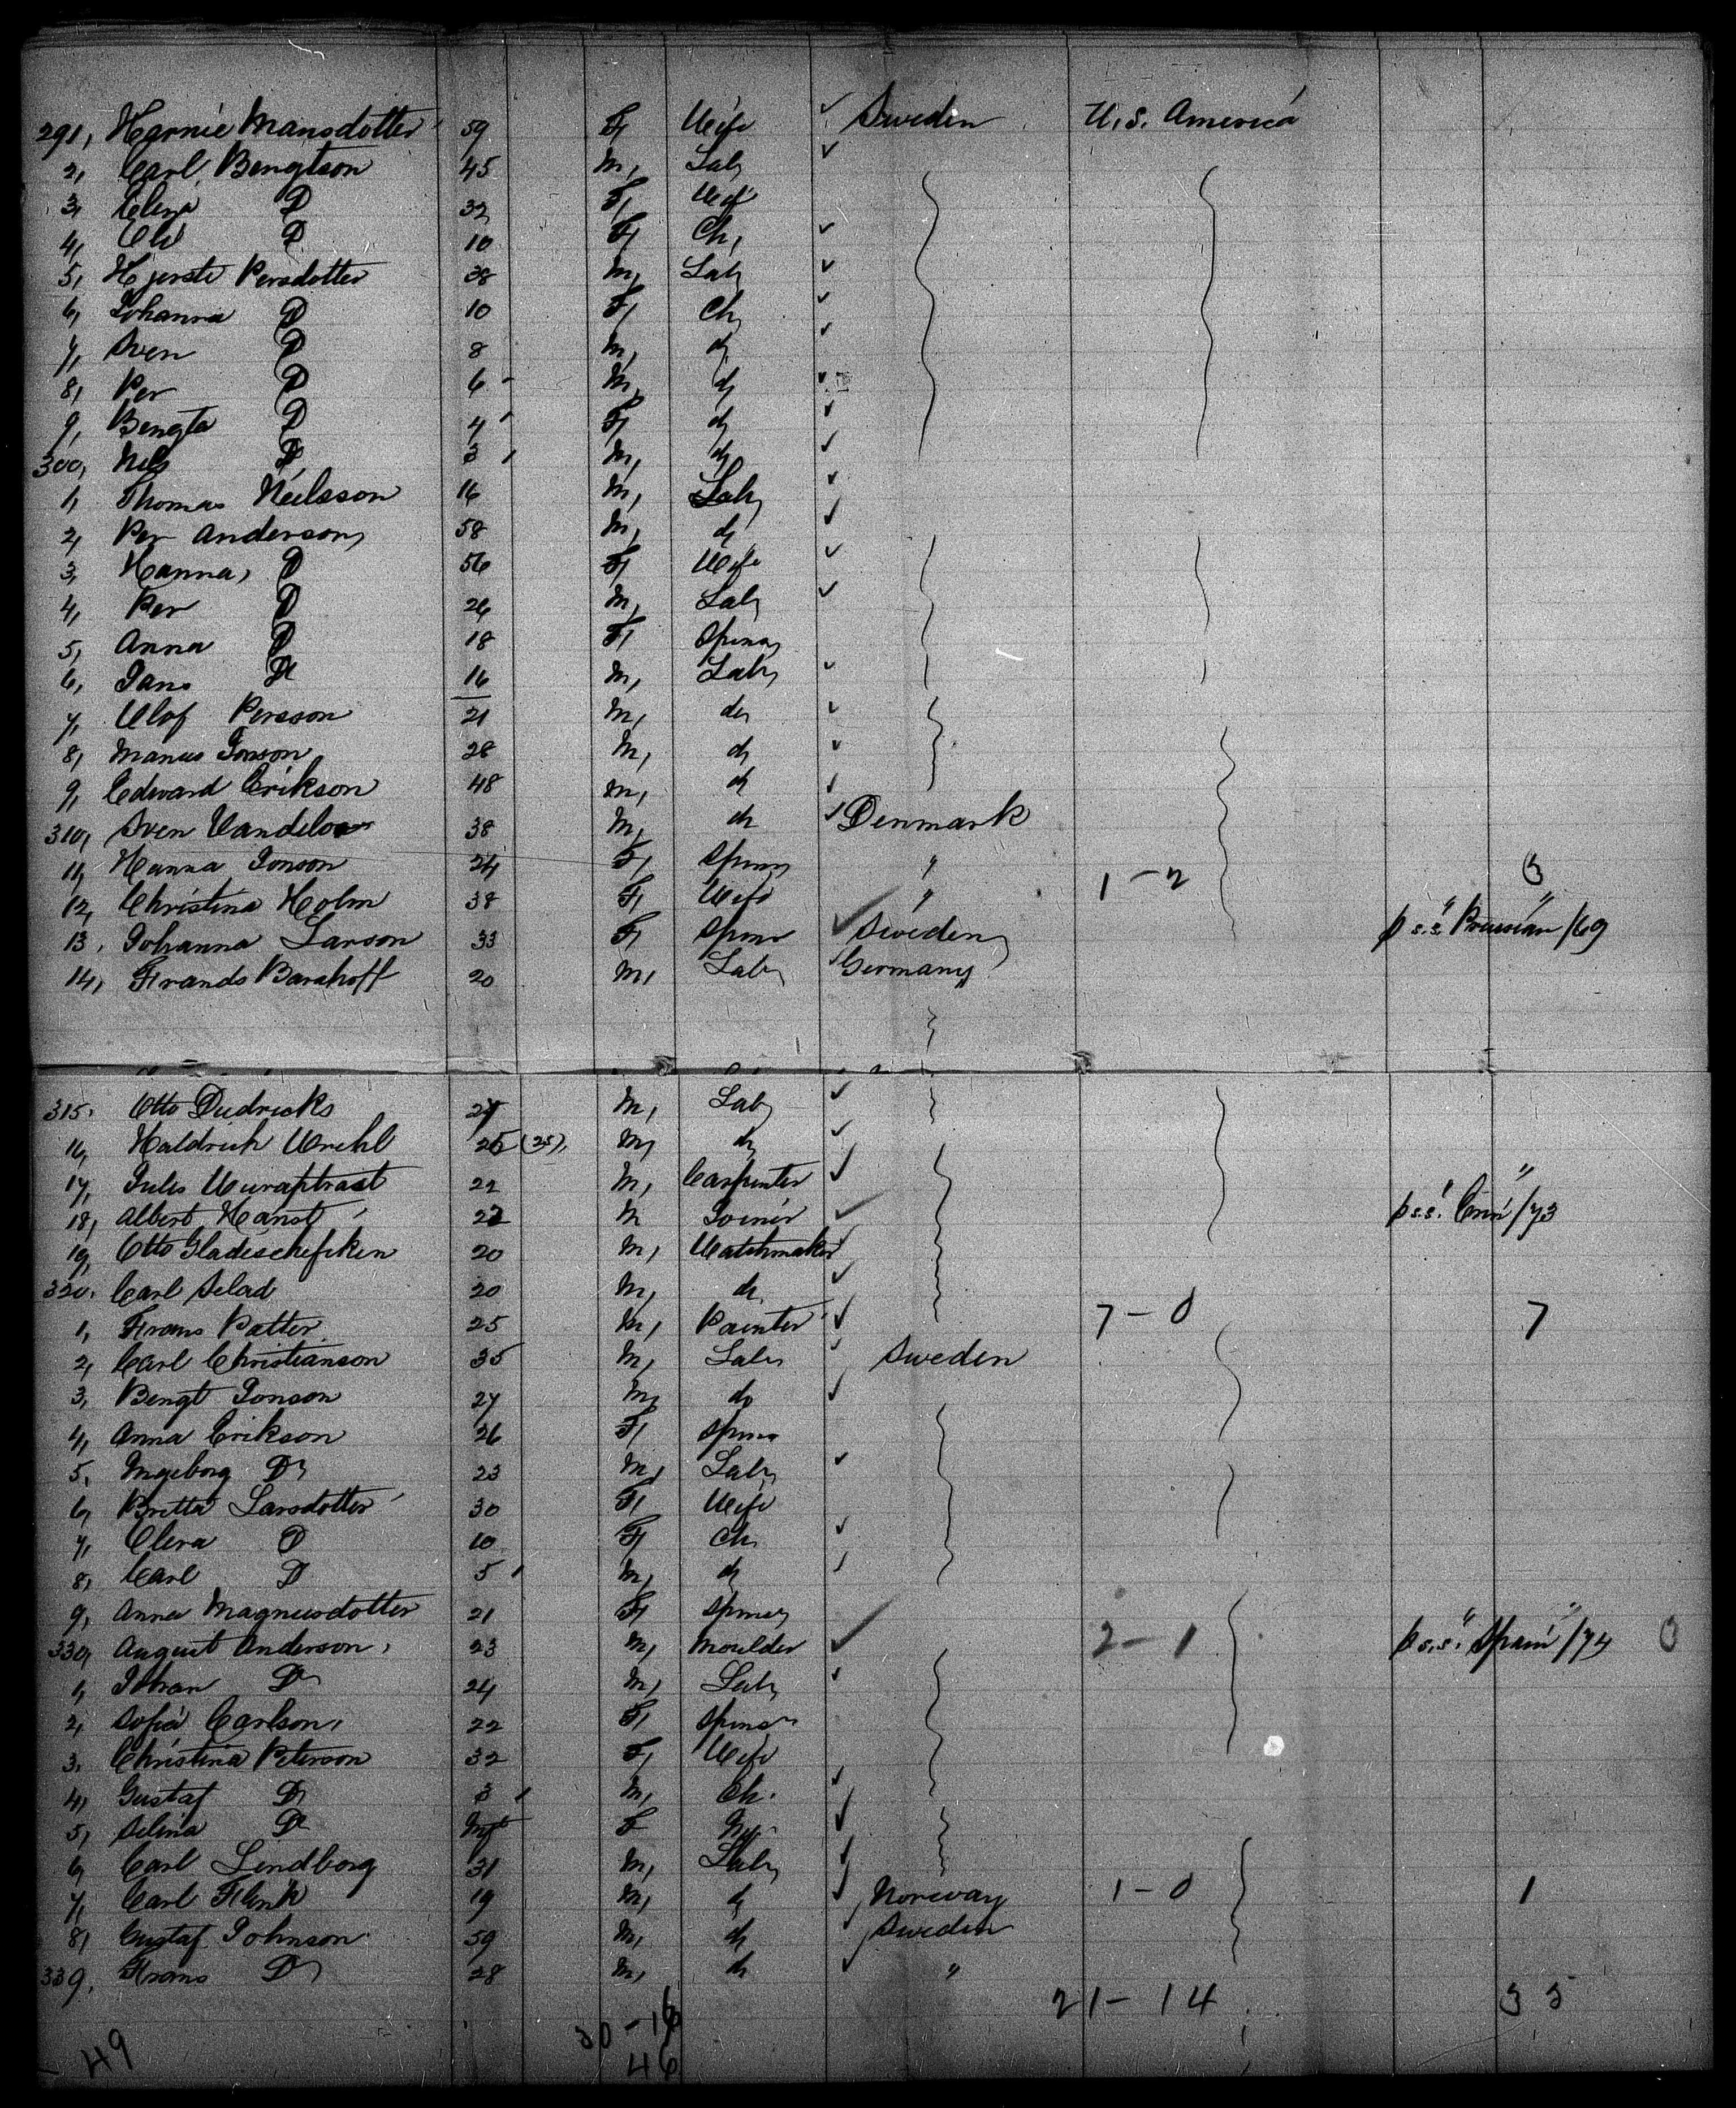 291, Hannie Mansdotter 59 F, Wife ✓ Sweden U.S. America
2, Carl Bengtson 45 M, Lab, ✓
3, Elena D 32 F, Wif
4, D 10 F, Ch, ✓
5, Hjerste Persdotter 38 M, Lab, ✓
6, Johanna D 10 F, Ch, ✓
7, Sven D 8 M, d, ✓
8, Per D 6 M, d, ✓
9, Bengta D 4 F, d, ✓
300, Nils D 3 M, d, ✓
1, Thomas Neilsson 16 M, Lab, ✓
2, Per Anderson, 58 M, d, ✓
3, Hanna, D 56 F, Wife ✓
4, Per D 26 M, Lab, ✓
5, Anna D 18 F, Spins,
6, Jans D 16 M, Lab, ✓
7, Olof Persson 21 M, do, ✓
8, Manus Jonson 28 M, d, ✓
9, Edward Erikson 48 M, d, ✓
310, Sven 38 M, d, ✓ Denmark
11, Hanna Jonson 24 F, Spins, " 1-2 3
12, Christina Holm 38 F, Wife "
13, Johanna Larson 33 F, Spins ✓ Sweden, p s.s. "Prussian"/69
14, Frands Barshoff 20 M, Lab, ✓ Germany
315, Otto Diedricks 27 M, Lab, ✓
16, Haldrich 26 (25), M, d, ✓
17, Jules 22 M, Carpenter ✓
18, Albert Hanst 22 M Joiner ✓ p s.s. "Erin"/73
19, Otto Gladeschefsken 20 M, Watchmaker ✓
320, Carl Selad 20 M, d, ✓
1, Frans Patter 25 M, Painter ✓ 7-0 7
2, Carl Christianson 35 M, Lab, ✓ Sweden
3, Bengt Jonson 27 M, do ✓
4, Anna Erikson 26 F, Spins
5, Ingeborg D, 23 M, Lab, ✓
6, Britta Larsdotter 30 F, Wife
7, Elena D 10 F, Ch, ✓
8, Carl D 5 M, d, ✓
9, Anna Magnusdotter 21 F, Spins,
330, August Anderson, 23 M, Moulder ✓ 2-1 p s.s. "Spain"/74 3
1, Johan D 24 M, Lab, ✓
2, Sofia Carlson, 22 F, Spins
3, Christina Peterson 32 F, Wife
4, Gustaf D 3 M, Ch. ✓
5, Selina D F ✓
6, Carl Lindborg 31 M, Lab, ✓
7, Carl Flink 19 M, d, ✓ Norway 1-0 1
8, Gustaf Johnson 59 M, d, ✓ Sweden
339, Frans D 28 M, d, ✓ "
21-14 35
30-16
49 46